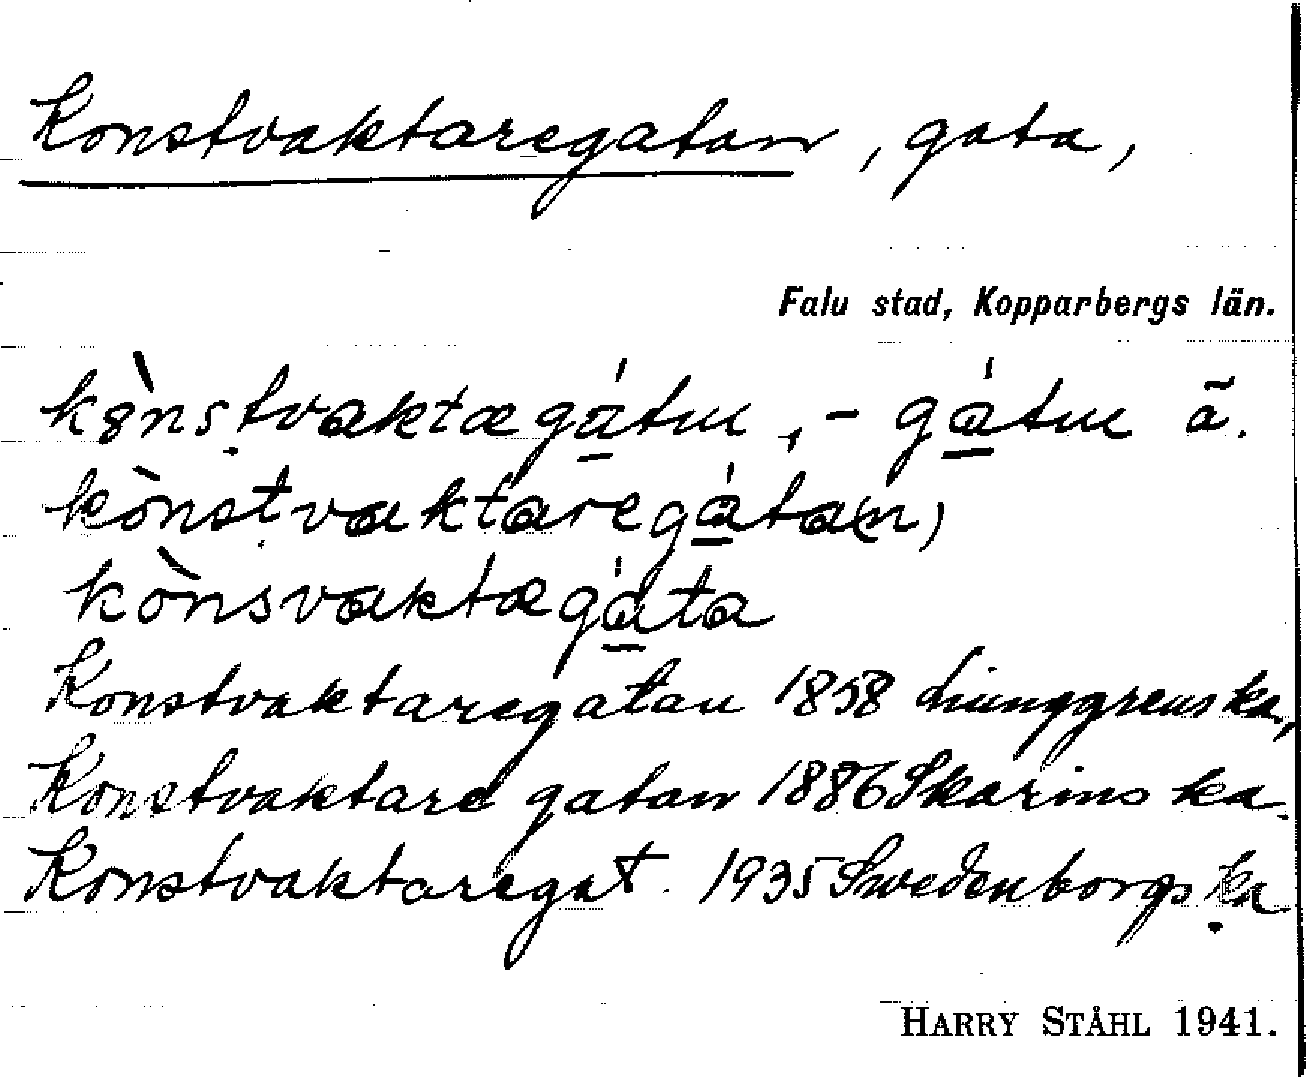 Konstvaktaregatan, gata,
Falu stad, Kopparbergs län.
kònstvaktægátu, -gátu ä.
kònstvaktaregáta(n)
kònsvaktægáta
Konstvaktaregatan 1858 Liunggrens ka,
Konstvaktare gatan 1886 Skarins ka.
Konstvaktaregat. 1935 Swedenborgs ka
HARRY STÅHL 1941.